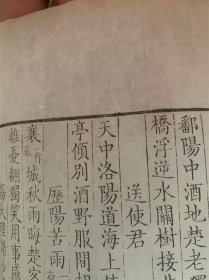 鄱陽中酒地楚老獨
橋浮逆水關樹接
送使君
天中洛陽道海上使
亭傾別酒野服間朝
歷陽苦雨
襄一作哀城秋雨晦楚客
離憂翻獨笑用事感